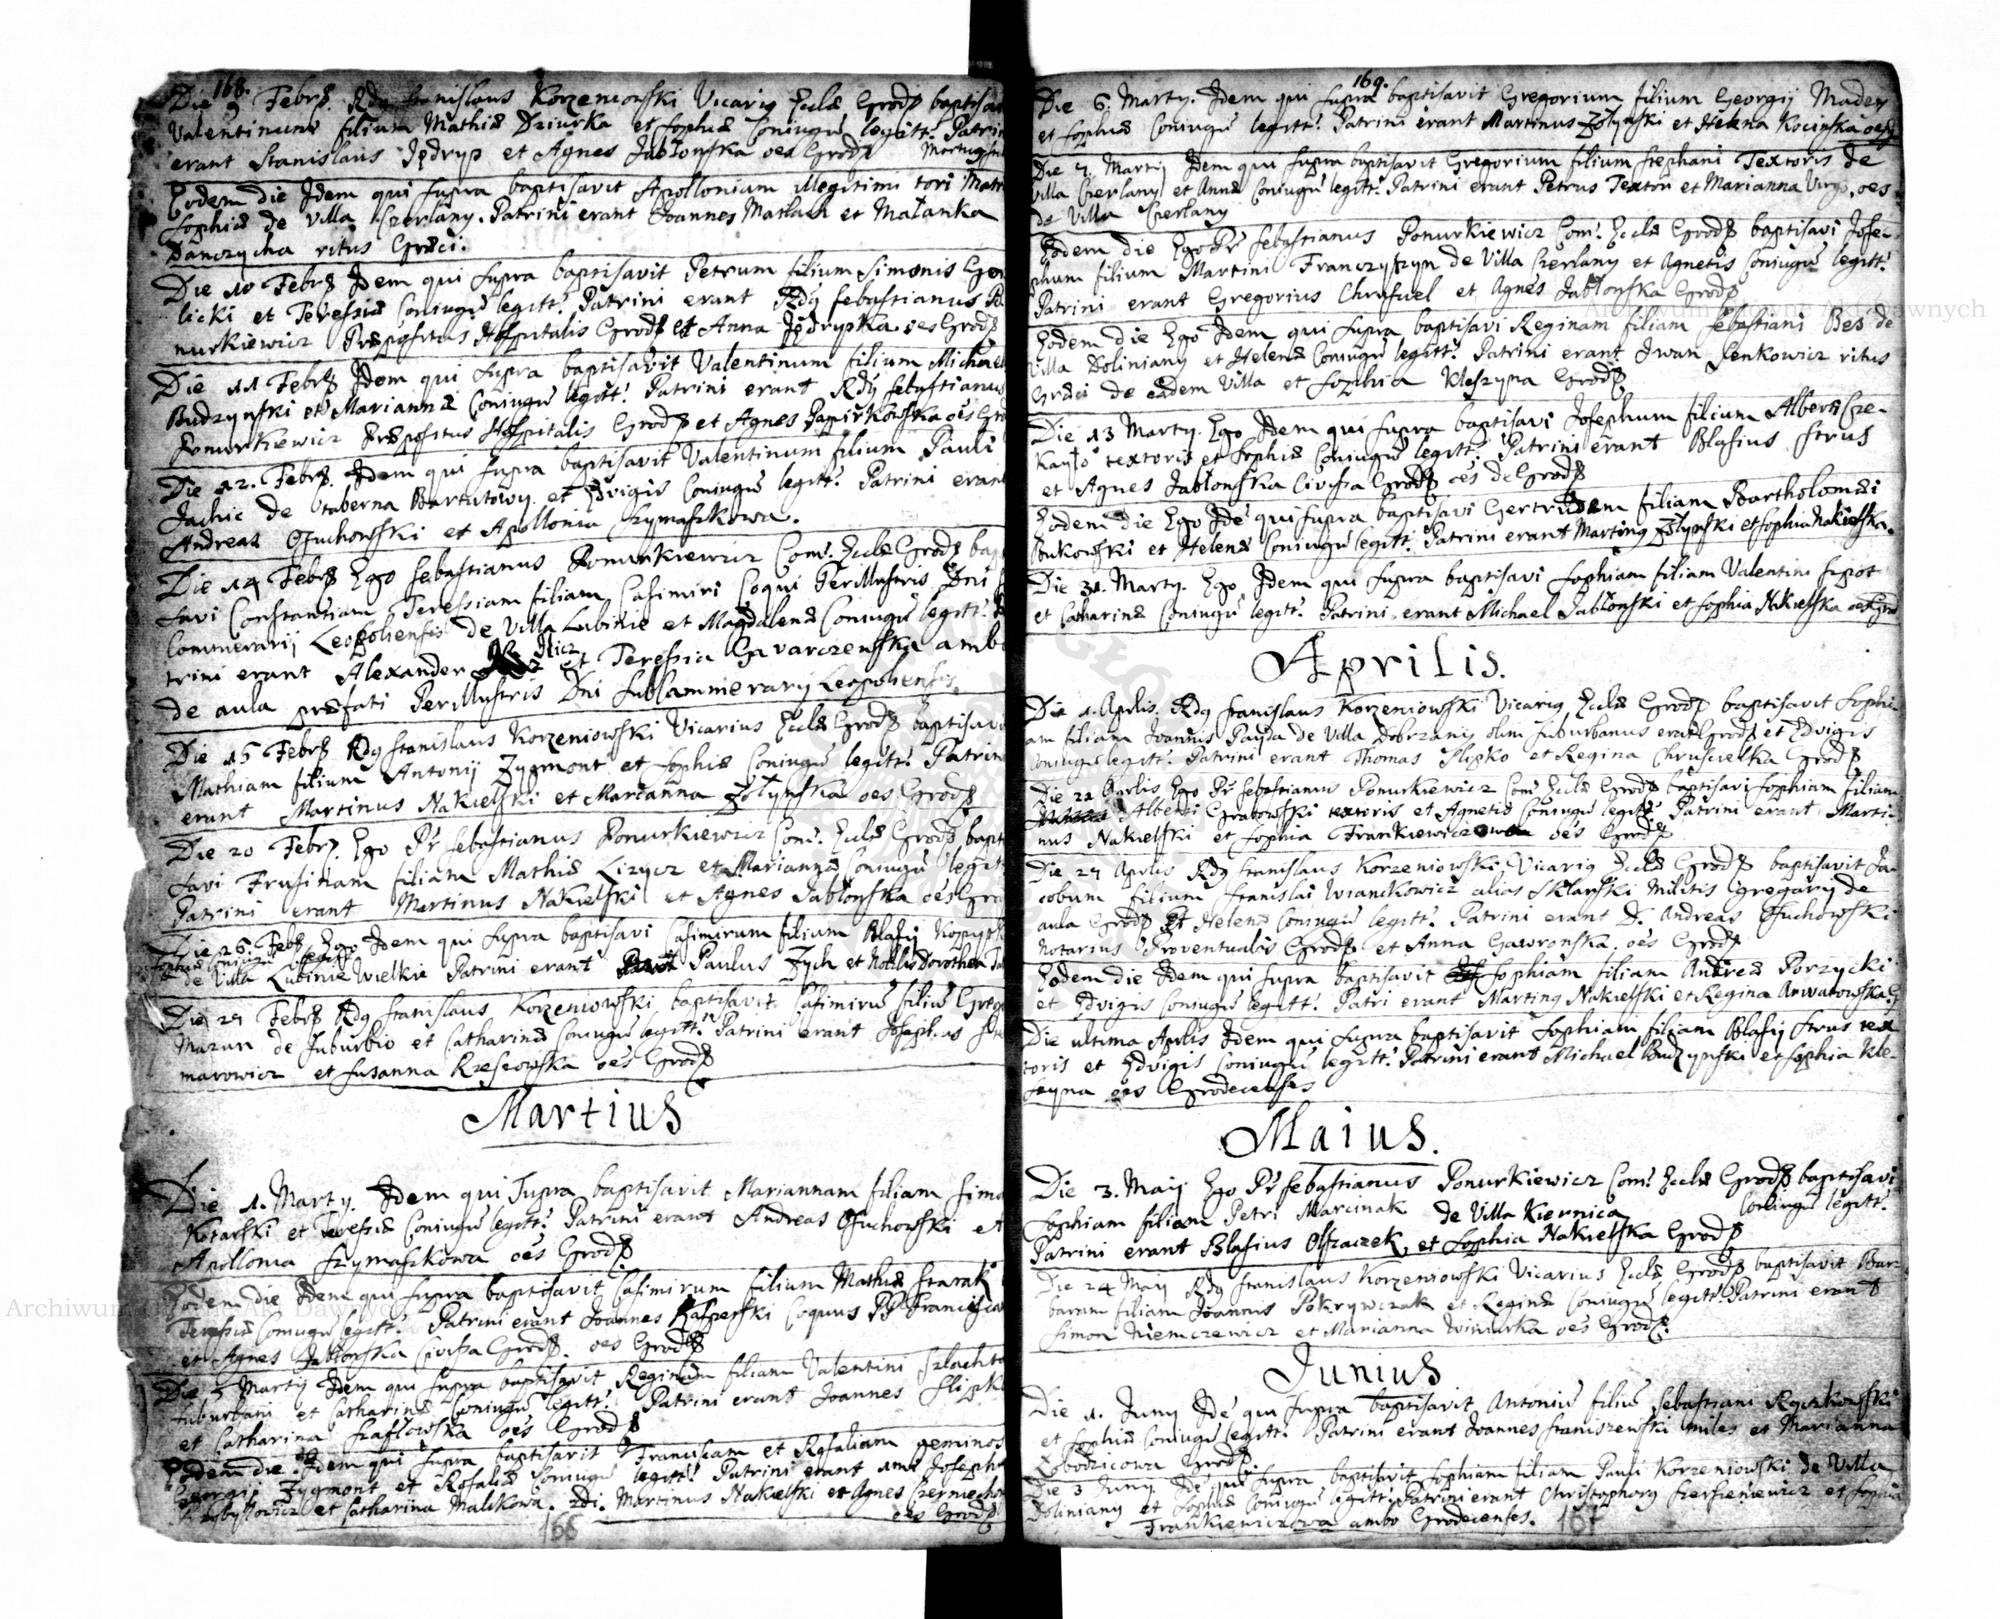 168.
Die 9 Febr. Rdg Stanislaus Korzeniowski Vicarig Eccl Grod baptisavit
Valentinum filium Mathiæ Dziurka et Sophiæ Coniugu legitt. Patrini
erant Stanislaus Jędryp et Agnes Jabłonska oes Grod
Eodem die Idem qui supra baptisavit Apolloniam illegitimi tori Matr
Sophiæ de Villa Czerlany. Patrini erant Joannes Matlach et Małanka
Danczycha ritus Græci.
Die 10 Febr Idem qui supra baptisavit Petrum filium Simonis
licki et Teressiæ Coniugu legitt. Patrini erant Rdg Sebastianus Po
nurkiewicz Præpositus Hospitalis Grod et Anna Jędrypka oes Grod
Die 11 Febr Idem qui supra baptisavit Valentinum filium Michael
Budzynski et Mariannæ Coniugu legitt. Patrini erant Rdg Sebastianus
Ponurkiewicz Præpositus Hospitalis Grod et Agnes Papirkowska oes Gro
Die 12. Febr. Idem qui supra baptisavit Valentinum filium Pauli
Jachic de taberna Bartutowy et Edvigis Coniugu legitt. Patrini erant
Andreas Ofuchowski et Apollonia Szymaszkowa.
Die 14 Febr Ego Sebastianus Ponurkiewicz Com. Eccl Grod bap
savi Constantiam Teressiam filiam Casimiri Coqui Perillustris Dni
Commerarij Leopoliensis de Villa Lubinie et Magdalenæ Coniugu legitt.
trini erant Alexander Ilicz et Teressia Gavarczenska ambo
de aula præfati Perillustris Dni Subcammerarij Leopoliensis.
Die 15 Febr Rdg Stanislaus Korzeniowski Vicarius Eccl Grod baptisavit
Mathiam filium Antonij Zygmont et Sophiæ Coniugu legitt. Patrini
erant Martinus Nakielski et Marianna Zołynska oes Grod
Die 20 Febr. Ego Pr Sebastianus Ponurkiewicz Com. Eccl Grod bapti
savi Frusinam filiam Mathiæ Lizycz et Mariannæ Coniugu legitt
Patrini erant Martinus Nakielski et Agnes Jabłonska oes Gro
Die 26. Febr Ego Idem qui supra baptisavi Casimirum filium Blasij
Sophiæ Coniugu legitt
de Villa Lubinie Wielkie Patrini erant Paulus Zych et Nobilis Dorothea
Die 27 Febr Rdg Stanislaus Korzeniowski baptisavit Casimiru filiu Grego
Mazur de suburbio et Catharinæ Coniugu legitt. Patrini erant Joseph.us
marowicz et Susanna Rzeszowska oes Grod
Martius
Die 1. Martij. Idem qui supra baptisavit Mariannam filiam Simo
Kotarski et Teressiæ Coniugu legitt. Patrini erant Andreas Ofuchowski et
Apollonia Szymaszkowa oes Grod
Eodem die Idem qui supra baptisavit Casimirum filium Mathiæ Starak
Teressiæ Coniugu legitt. Patrini erant Joannes Kasperski Coquus PP Francisca
et Agnes Jabłonska Civissa Grod. oes Grod
Die 5 Martij Idem qui supra baptisavit Reginam filiam Valentini Szlachto
suburbani et Catharinæ Coniugu legitt. Patrini erant Joannes Slipko
et Catharina Szafłowska oes Grod
Eodem die Idem qui supra baptisavit Franciscam et Rosaliam geminos
Georgij Zygmont et Rosaliæ Coniugu legitt. Patrini erant 1mi Joseph
Przybyłowicz et Catharina Malikowa. 2di. Martinus Nakielski et Agnes
oes Grod
168
169.
Die 6. Martij. Idem qui supra baptisavit Gregorium filium Georgij Madey
et Sophiæ Coniugu legitt. Patrini erant Martinus Zołynski et Helena Kocipska oes
Die 7. Martij Idem qui supra baptisavit Gregorium filium Stephani Textoris de
Villa Czerlany et Annæ Coniugu legitt. Patrini erant Petrus Textor et Marianna Virgo, oes
de Villa Czerlany
Eodem die Ego Pr Sebastianus Ponurkiewicz Com. Eccl Grod baptisavi Jose-
phum filium Martini Franczyszyn de Villa Czerlany et Agnetis Coniugu legitt.
Patrini erant Gregorius Chrusciel et Agnes Jabłonska Grod
Eodem die Ego Idem qui supra baptisavi Reginam filiam Sebastiani Bes de
Villa Doliniany et Helenæ Coniugu legitt. Patrini erant Iwan Senkowicz ritus
Græci de eadem Villa et Sophia Kleszyna Grod
Die 13 Martij. Ego Idem qui supra baptisavi Josephum filium Alberti Cze-
kayło textoris et Sophiæ Coniugu legitt. Patrini erant Blasius Strus
et Agnes Jabłonska Civissa Grod oes de Grod
Eodem die Ego Ide qui supra baptisavi Gertrudem filiam Bartholomæi
Bukowski et Helenæ Coniugu legitt. Patrini erant Marting Zołynski et Sophia Nakielska.
Die 31. Martij. Ego Idem qui supra baptisavi Sophiam filiam Valentini Szpot
et Catharinæ Coniugu legitt. Patrini erant Michael Jabłonski et Sophia Nakielska oes Grod
Aprilis.
Die 1. Aprilis. Rdg Stanislaus Korzeniowski Vicarig Eccl Grod baptisavit Sophi-
am filiam Joannis Payda de Villa Dobrzany olim suburbanus erat Grod et Edvigis
Coniugu legitt. Patrini erant Thomas Slipko et Regina Chruscielka Grod
Die 22 Aprilis Ego Pr Sebastianus Ponurkiewicz Com Eccl Grod baptisavi Sophiam filiam
Alberti Grabowski textoris et Agnetis Coniugu legitt. Patrini erant Marti-
nus Nakielski et Sophia Frankiewiczowa oes Grod
Die 27 Aprilis Rdg Stanislaus Korzeniowski Vicarig Eccl Grod baptisavit Ja-
cobum filium Stanislai Wianckowicz alias Sklarski Militis Gregarij de
aula Grod et Helenæ Coniugu legitt. Patrini erant D. Andreas Ofuchowski
Notarius Proventualis Grod et Anna Gawronska. oes Grod
Eodem die Idem qui supra baptisavit Sophiam filiam Andreæ Porzycki
et Edvigis Coniugu legitt. Patri erant Marting Nakielski et Regina Anwatowska G
Die ultima Aprilis Idem qui supra baptisavit Sophiam filiam Blasij Strus tex
toris et Edvigis Coniugu legitt. Patrini erant Michael Budzynski et Sophia Kle-
szyna oes Grodecenses
Maius.
Die 3. Maij Ego Pr Sebastianus Ponurkiewicz Com. Eccl Grod baptisavi
Sophiam filiam Petri Marcinak de Villa Kiernica Coniugu legitt.
Patrini erant Blasius Olszaczek, et Sophia Nakielska Grod
Die 24 Maij Rdg Stanislaus Korzeniowski Vicarius Eccl Grod baptisavit Bar-
baram filiam Joannis Pokrywczak et Reginæ Coniugu legitt. Patrini erant
Simon Niemczewicz et Marianna Winiarka oes Grod.
Junius
Die 1. Junij Ide qui supra baptisavit Antoniu filiu Sebastiani Rączkowski
et Sophiæ Coniugu legitt. Patrini erant Joannes Staniszewski miles et Marianna
Łobodzicowa Grod
Die 3 Junij Ide qui supra baptisavit Sophiam filiam Pauli Korzeniowski de Villa
Doliniany et Sophiæ Coniugu legitt. Patrini erant Christophorg Szerszeniewicz et Sophia
Frankiewiczowa ambo Grodecenses.
167
Archiwum Główne Akt Dawnych
Archiwum Główne Akt Dawnych